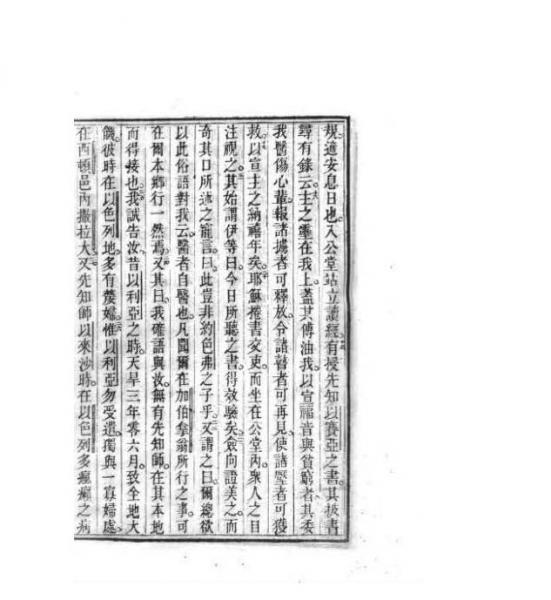 規。適安息日也。入公堂站立讀經。有授先知以賽亞之書。其披書
尋有錄云。主之靈在我上。蓋其傅油我。以宣福音與貧窮者。其委
我醫傷心輩。報諸擄者可釋放。令諸瞽者可再見。使諸壓者可獲
救。以宣主之納禧年矣。耶穌捲書交吏。而坐在公堂內。眾人之目
注視之。其始謂伊等曰。今日所聽之書。得效驗矣。僉向證美之。而
奇其口所述之寵言。曰。此豈非約色弗之子乎。又謂之曰。爾總欲
以此俗語對我云。醫者自醫也。凡聞爾在加伯拿翁所行之事。可
在爾本鄉行一然焉。又其曰。我確語與汝。無有先知師。在其本地
而得接也。我誠告汝。昔以利亞之時。天旱三年零六月。致全地大
饑。彼時在以色列地。多有嫠婦。惟以利亞勿受遣。獨與一寡婦處。
在西頓邑內撒拉大。又先知師以來沙時。在以色列多瘋癩之病